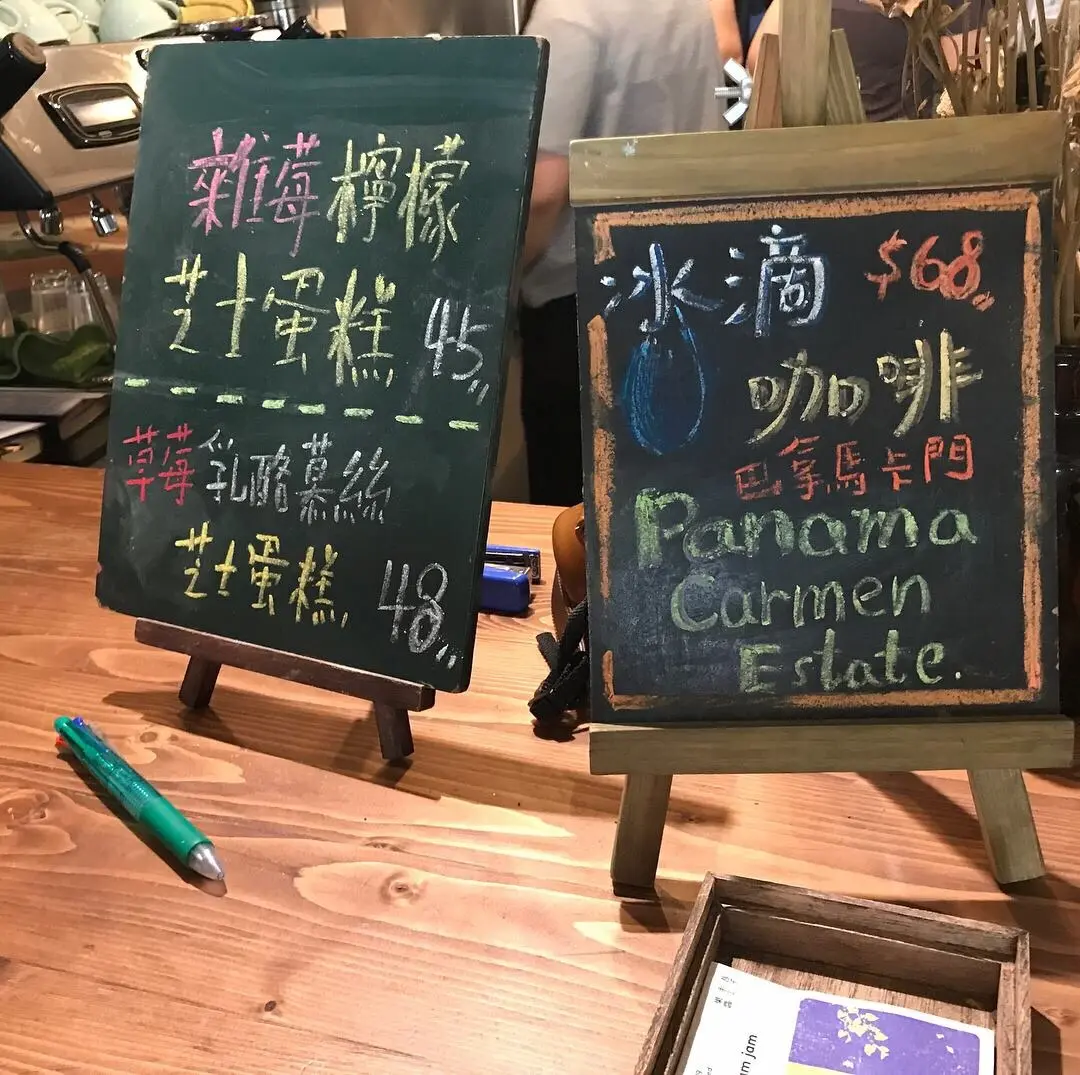 雜莓檸檬
芝士蛋糕 45
草莓乳酪慕絲
芝士蛋糕 48
冰滴 $68
咖啡
巴拿馬卡門
Panama
Carmen
Estate.
am jam